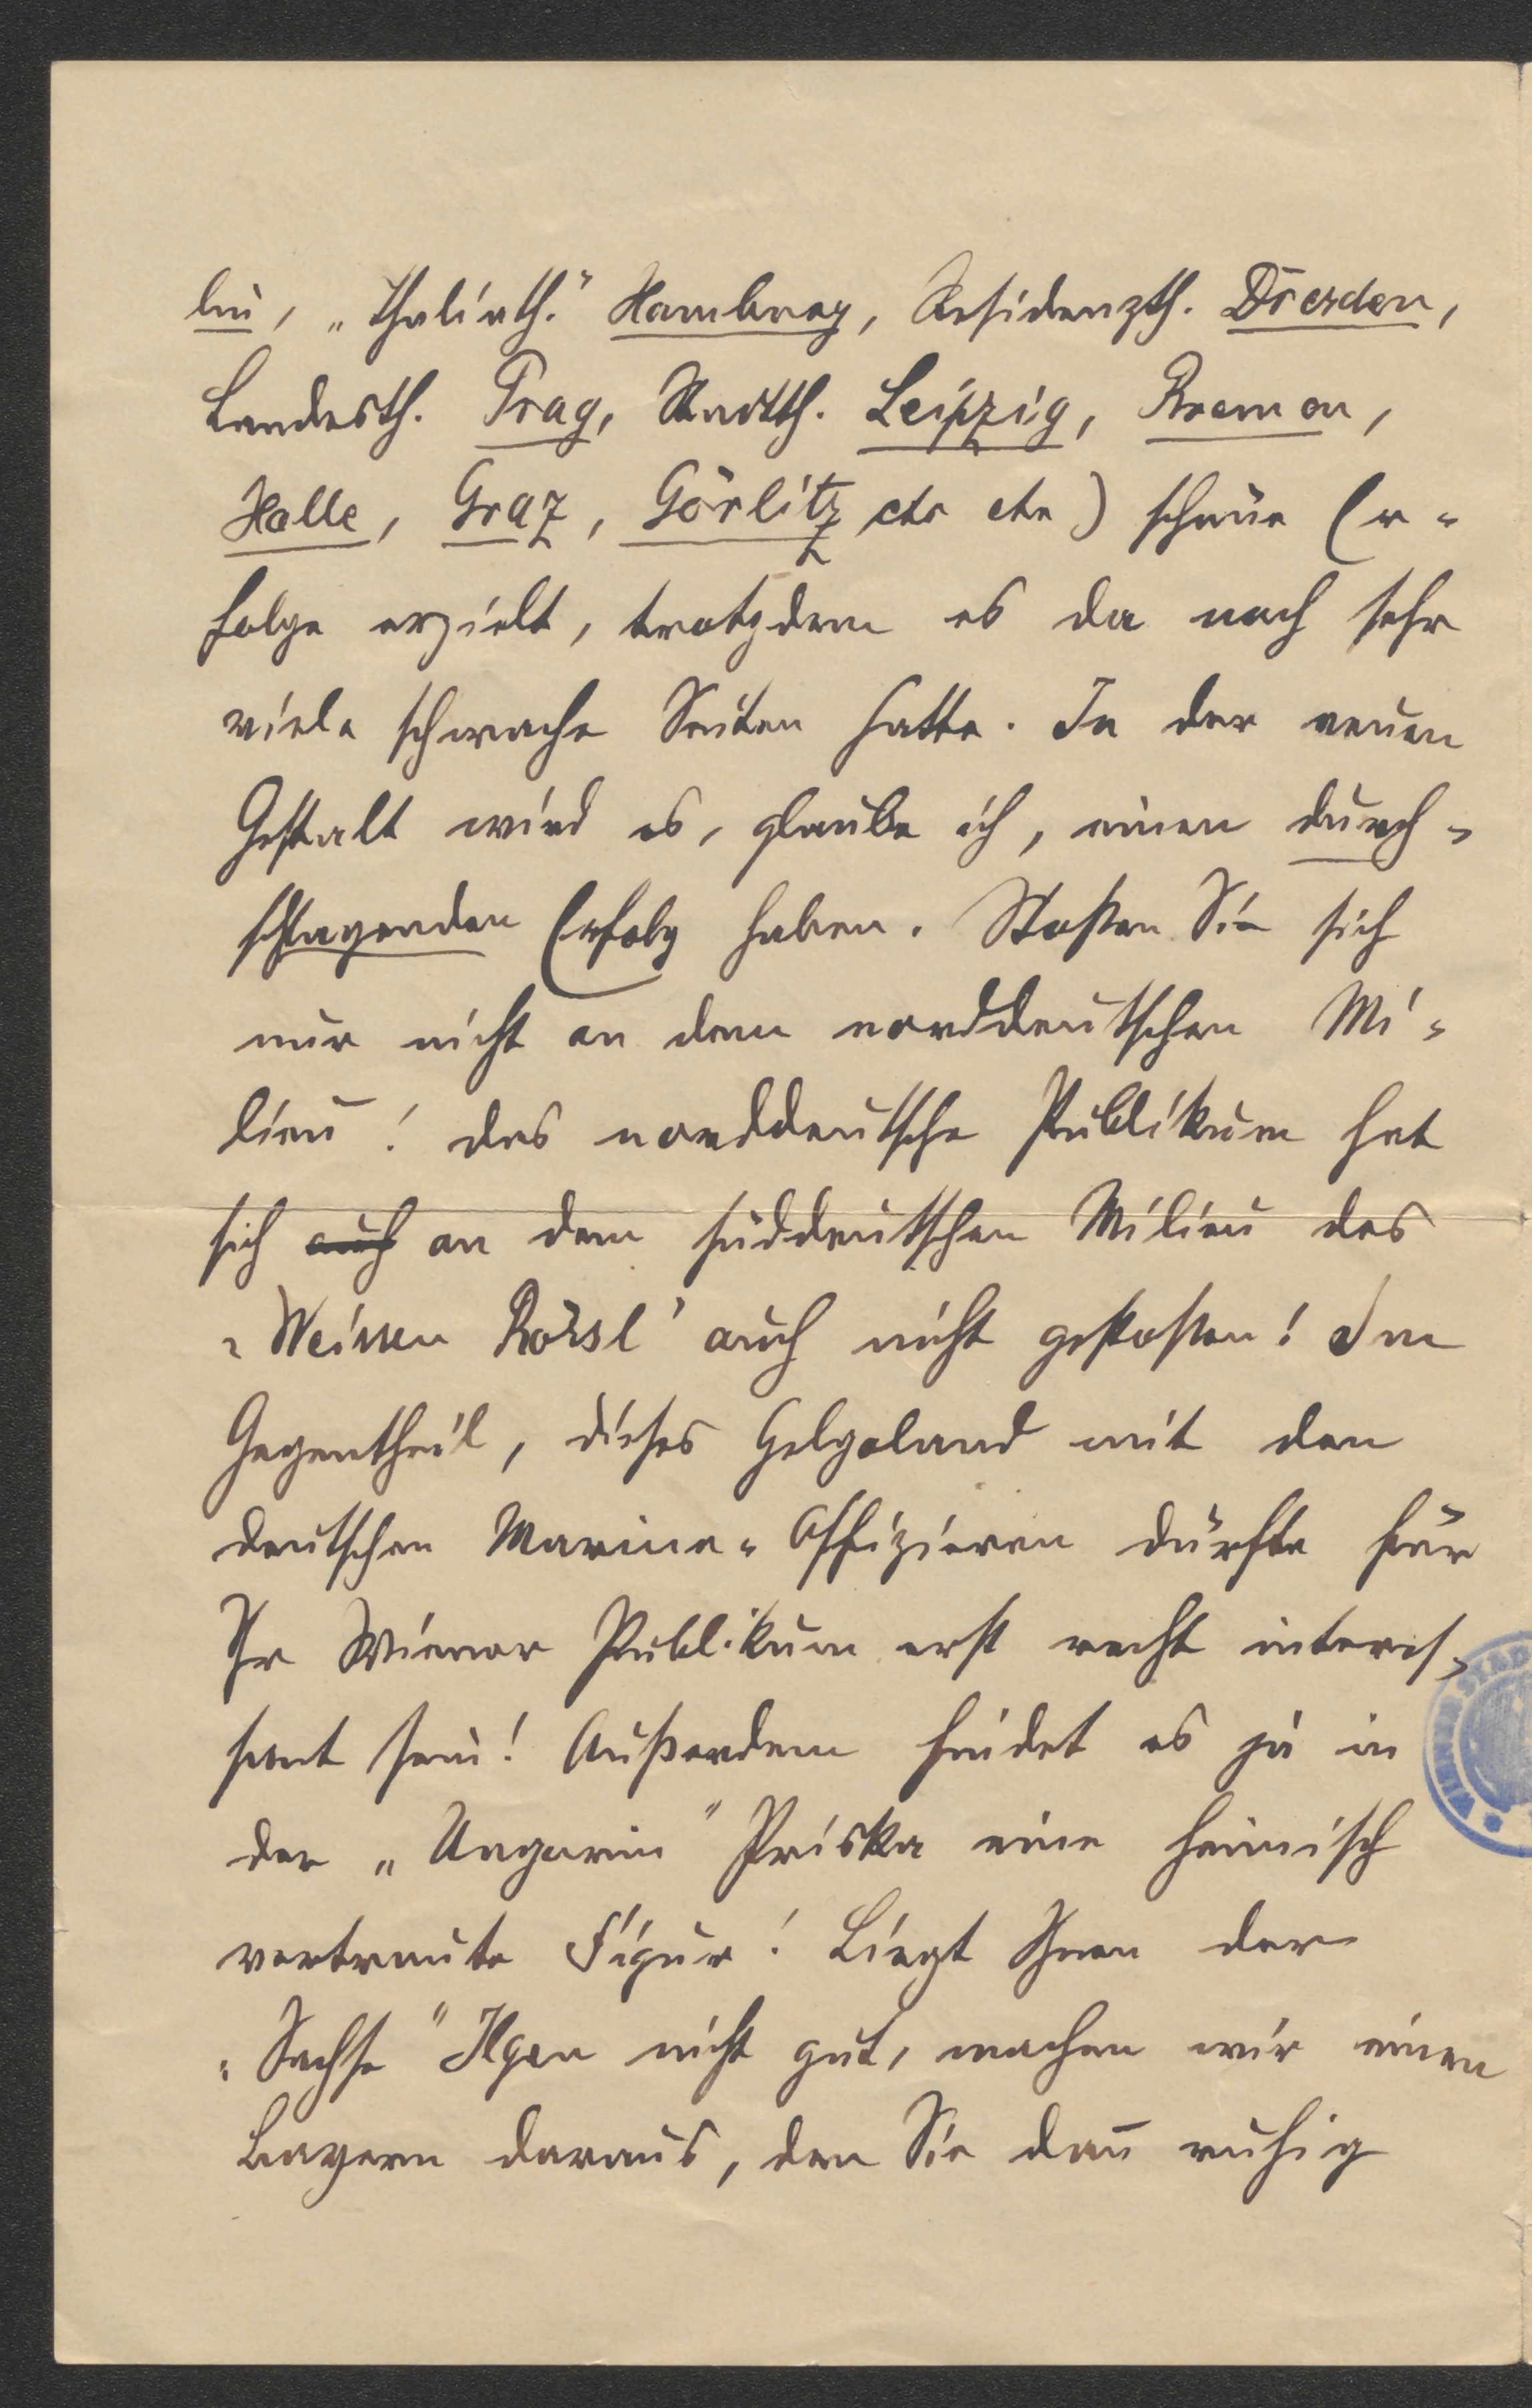 lin, „Thaliath.“ Hamburg, Residenzth. Dresden,
Landesth. Prag, Stadtth. Leipzig, Bremen,
Halle, Graz, Görlitz etc etc) schöne Er-
folge erzielt, trotzdem es da noch sehr
viele schwache Seiten hatte. In der neuen
Gestalt wird es, glaube ich, einen durch-
schlagenden Erfolg haben. Stoßen Sie sich
nur nicht an dem norddeutschen Mi-
lieu! Das norddeutsche Publikum hat
sich auch an dem süddeutschen Milieu des
„Weissen Rössl“ auch nicht gestoßen! Im
Gegentheil, dieses Helgoland mit den
deutschen Marine-Offizieren dürfte für
Ihr Wiener Publikum erst recht interes-
sant sein! Außerdem findet es ja in
der „Ungarin“ Priska eine heimisch
vertraute Figur! Liegt Ihnen der
„Sachse“ Ilgen nicht gut, machen wir einen
Bayern daraus, den Sie dañ ruhig